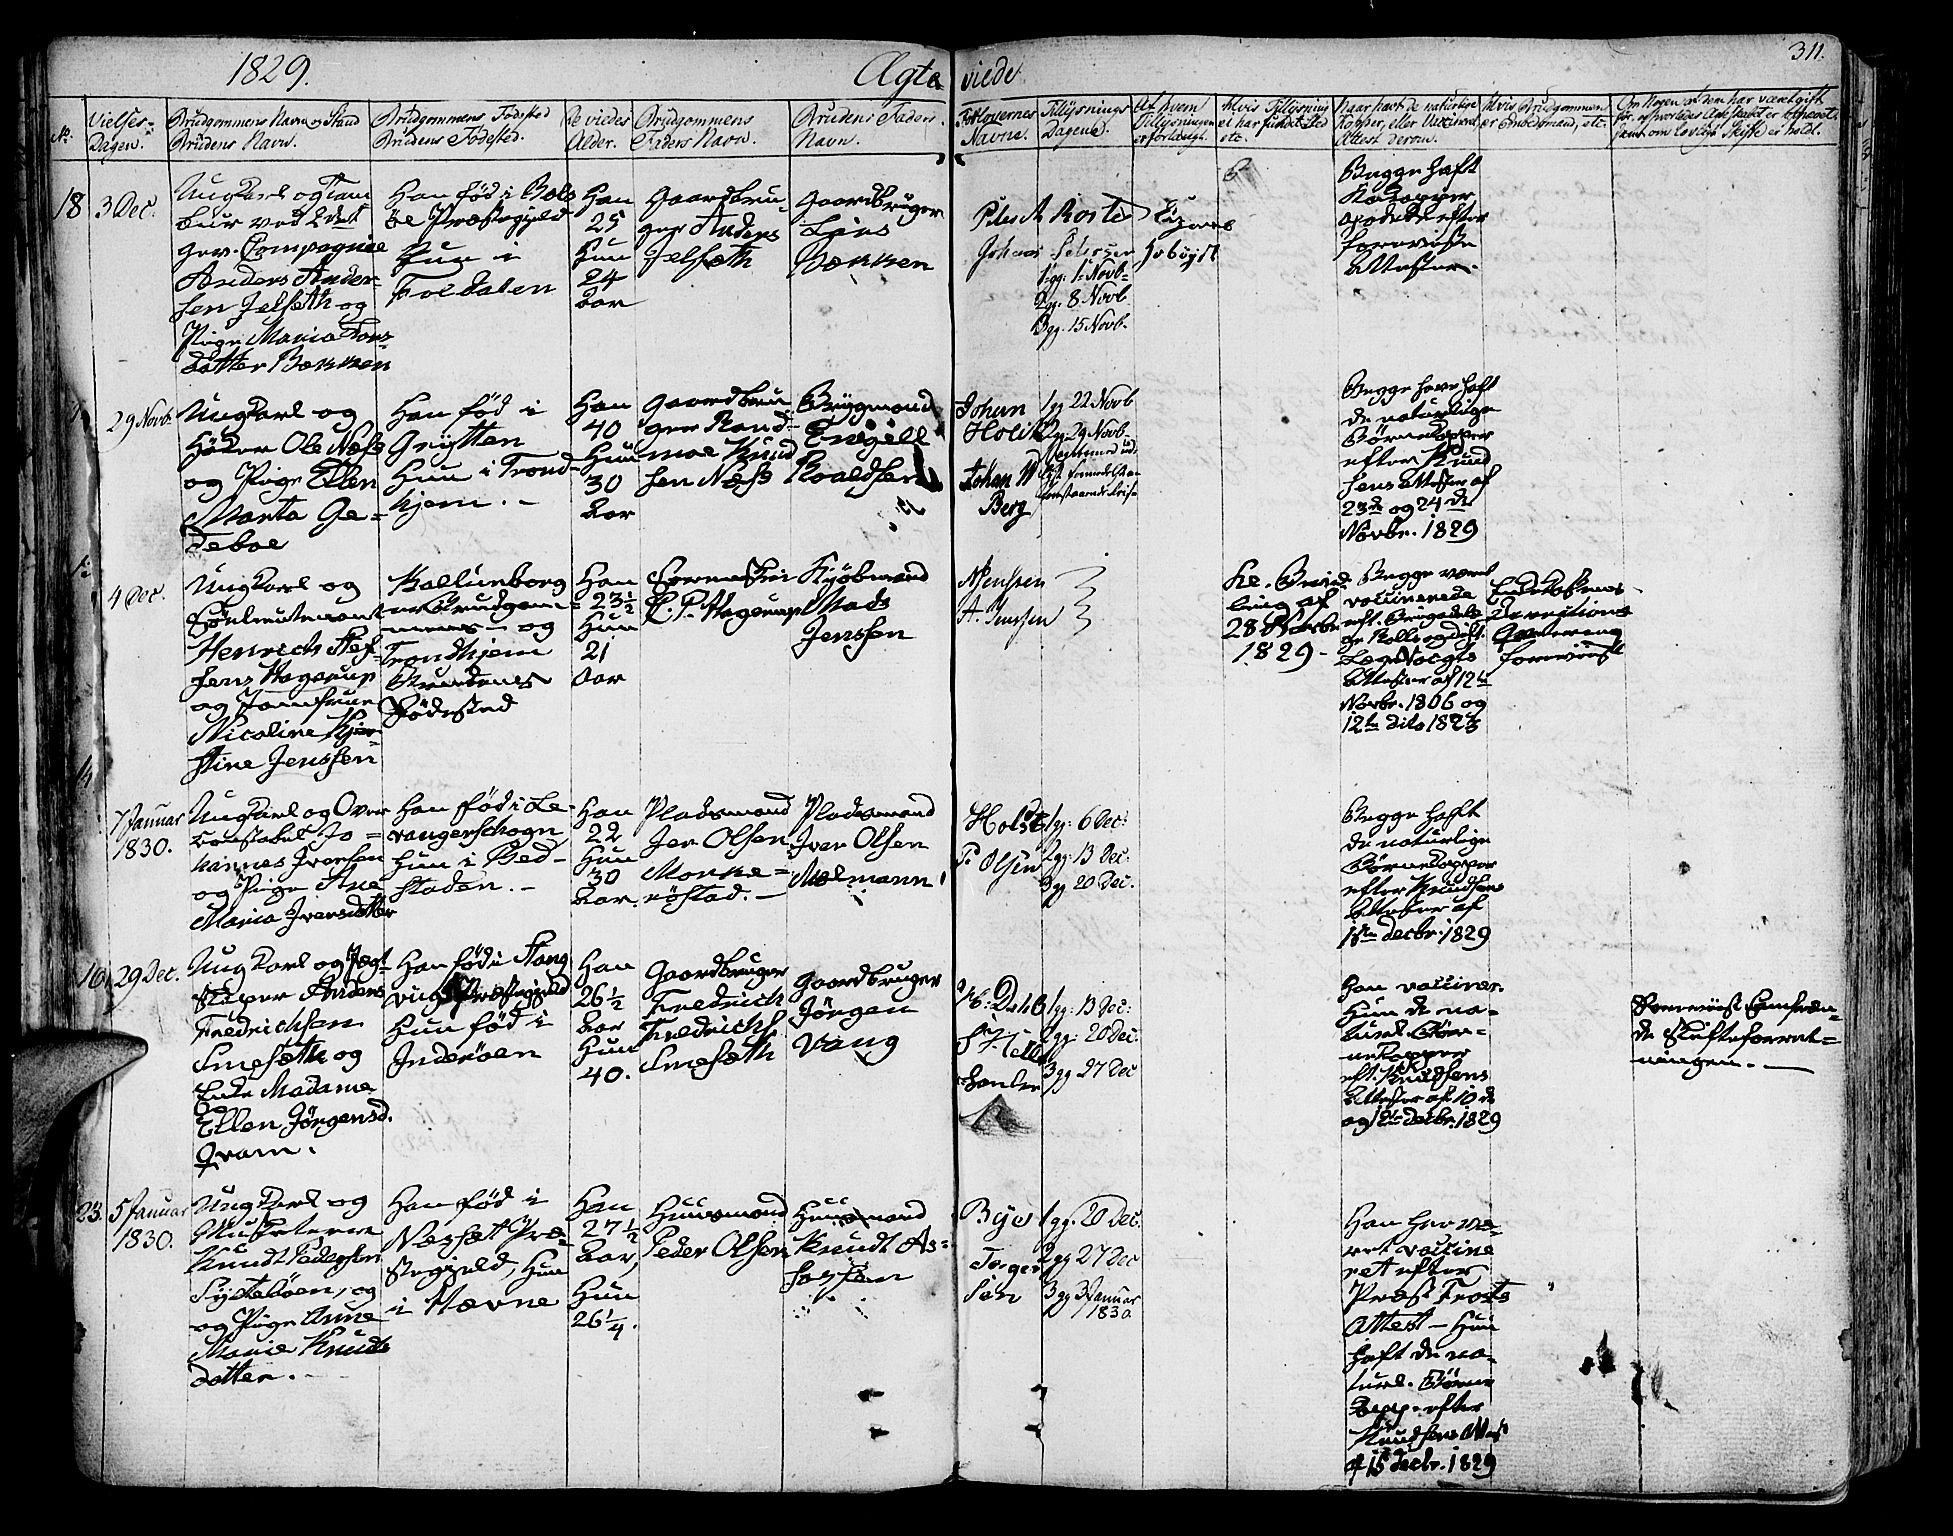 1829.
Ægte viede
311.
No.
Vielses-
Dagen.
Brudgommens Navn og Stand
Brudens Navn.
Brudgommens Fødested
Brudens Fødested.
De viedes
Alder.
Brudgommens
Faders Navn.
Brudens Faders
Navn.
Forlovernes
Navne.
Tillysnings
Dagene.
Af hvem
Tillysningen
er forlangt.
Hvis Tillysning
ei har fundet Sted
etc.
Naar havt de naturlige
Kopper, eller Vaccineret
Attest derom.
Hvis Brudgommen
er Embedsmand, etc.
Om Nogen af dem har været gift
før
18
3 Dec.
Ungkarl og Tam
bur ved 2det
gev. Compagnie
Anders Ander-
sen Jelseth og
Pige Maria Lars
datter Bakken
Han fød i Bols
øe Præstegjeld
Hun i
Foldalen
Han
25
Hun
24
Aar
Gaardbru-
ger Anders
Jelseth
Gaardbruger
Lars
Bakken
Johan Petersen
1 gg. 1 Novb.
2 gg. 8 Novb
3 gg. 15 Novb.
Begge haft
Kokopper
efter
foreviste
Attester.
29 Novb.
Ungkarl og
Høker Ole Næss
og Pige Ellen
Marta Ge-
teboe
Han fød i
Grytten
Hun i Trond-
hjem. -
Han
40
Hun
30
Aar
Gaardbru
ger Rand-
moe Knud
sen Næss
Bygmand
Engell
Roaldsen
Johan
Holst
Johan W
Berg
1 gg 22 Novb
2 gg. 29 Novb.
Begge have haft
de naturlige
Børnekopper
efter Knud
sens Attester af
23de og 24de
Novbr. 1829
4 Dec.
Ungkarl og
Søelieutenant
Henrich Stef-
fens Hagerup
og Jomfrue
Nicoline Kjer-
stine Jenssen
Kallunborg
er Brudgom-
mens - og
Trondhjem
Brudens
Fødested
Han
23 ½
Hun
21
Aar
E. P. Hagerup
Kjøbmand
Mads
Jenssen
Jenssen
A. Jenssen
Kl. Bevil
ling af
28 Novbr
1829 -
Begge være
vaccinerede
Attester af 12te
Novbr. 1806 og
12te dito 1823
Enkekassens
Direktions
forevist
7 Januar
1830.
Ungkarl og Over
konstabel Jo-
hannes Iversen
og Pige Ane
Maria Iversdatter
Han fød i Le-
vangerschogn
Hun i Bed-
staden. -
Han
22
Hun
30
Aar.
Pladsmand
Iver Olsen
Morke-
røstad. -
Pladsmand
Iver Olsen
Mælmann
Holst
P. Olsen
1 gg. 6 Dec.
2 gg. 13 Dec.
3 gg 20 Dec.
Begge haft
de naturlige
Børnekopper
efter Knudsens
Attester af
1ste decbr. 1829
16
29 Dec.
Ungkarl og Jægt
skiper Anders
Fredrichsen
Smeseth og
Enke Madame
Ellen Jørgensd.
Qvam.
Han fød i Stang
vigs Præstegjeld
Hun fød i
Inderøen
Han
26 ½
Aar
Hun
40.
Gaardbruger
Fredrich
Fredrichs
Smesæth
Gaardbruger
Jørgen
Vang
1 gg. 13 Dec.
2 gg. 20 Dec.
3 gg 27 Dec
Han vacciner.
Hun de na-
turl. Børn-
nekopper
eft. Knudsens
Attester af 10de
og 12te decbr. 1829
Forevist Samfræn-
de Skifteforret-
ningen. -
23.
5 Januar
1830.
Ungkarl og
Musketeer
Knudt Pedersen
Systebøen, og
og Pige Anne
Marie Knuds
datter. -
Han fød i
Nesset Præ-
stegjeld, Hun
i Hævne
Han
27 ½
Aar,
Hun
26 ¼.
Huusmand
Peder Olsen
Huusmand
Knudt As-
sersen
Bye
Torger
Sen
1 gg. 20 Dec.
2 gg 27 Dec
3 gg 3 Januar
1830.
Han har væ-
ret vaccine
ret efter
Præst Frosts
Attest - Hun
haft de na-
turl. Børne
kopp. efter
Knudsens Attest
af 15 decbr. 1829